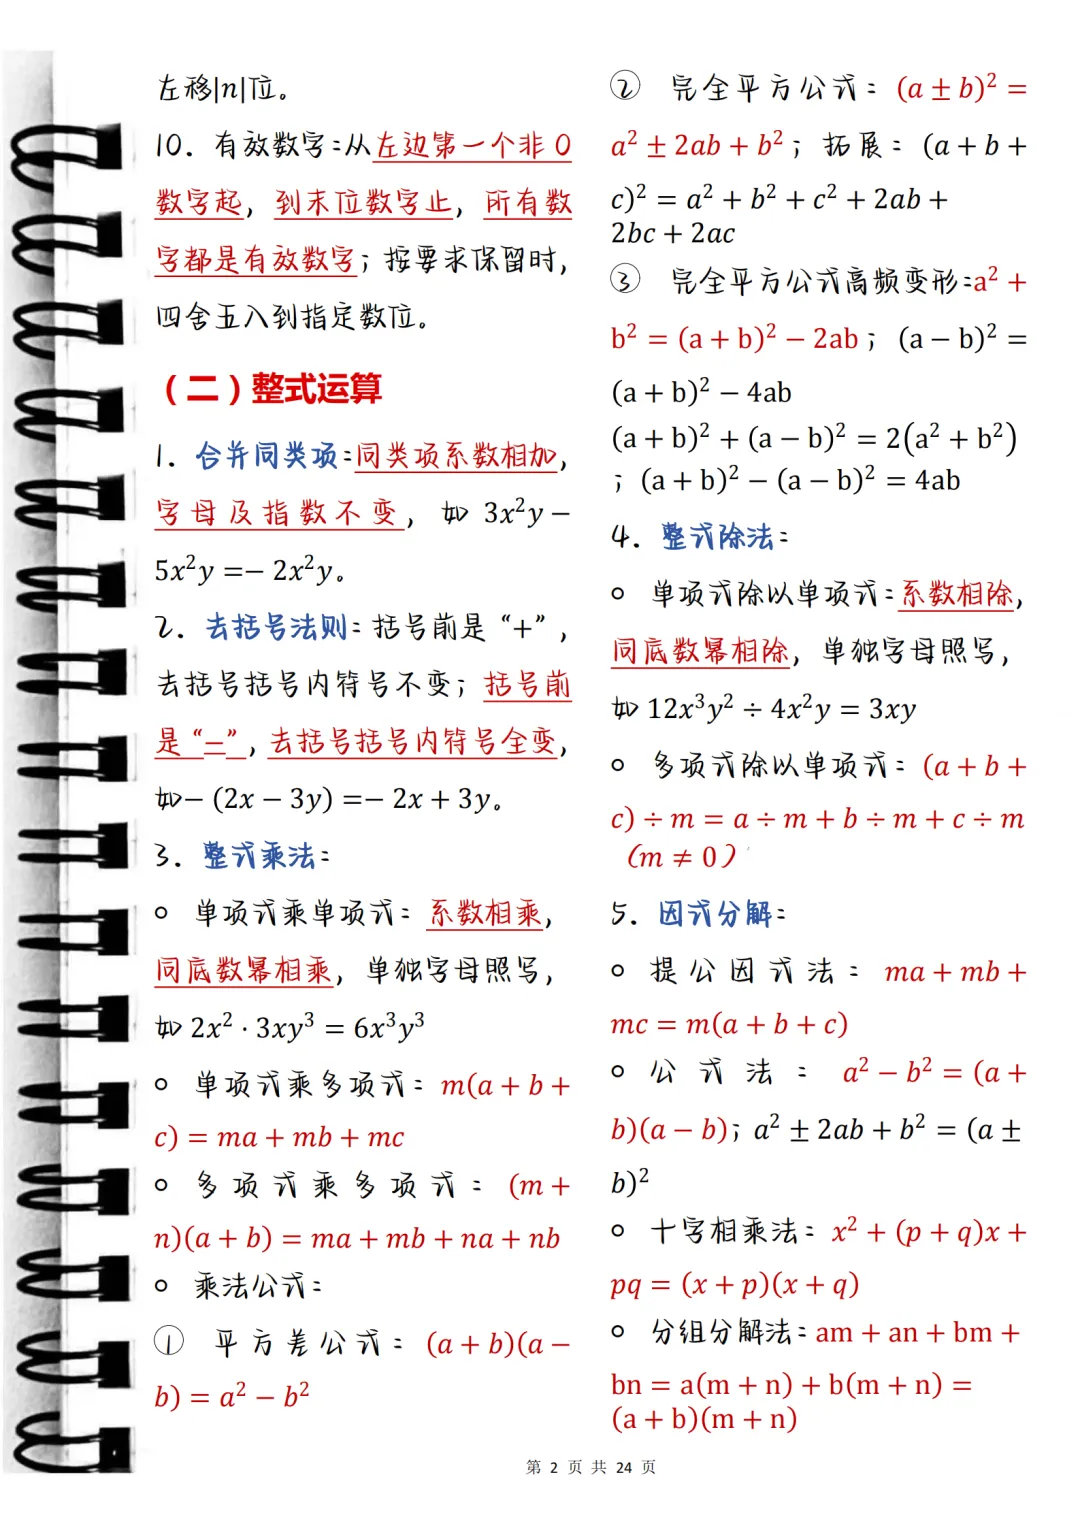 左移|n|位。
10. 有效数字:从左边第一个非 0
数字起，到末位数字止，所有数
字都是有效数字；按要求保留时，
四舍五入到指定数位。
（二）整式运算
1. 合并同类项:同类项系数相加，
字母及指数不变，如 3x²y −
5x²y =− 2x²y。
2. 去括号法则:括号前是“+”，
去括号括号内符号不变；括号前
是“—”，去括号括号内符号全变，
如− (2x − 3y) =− 2x + 3y。
3. 整式乘法:
○ 单项式乘单项式: 系数相乘，
同底数幂相乘，单独字母照写，
如 2x² · 3xy³ = 6x³y³
○ 单项式乘多项式: m(a + b +
c) = ma + mb + mc
○ 多项式乘多项式: (m +
n)(a + b) = ma + mb + na + nb
○ 乘法公式:
① 平方差公式: (a + b)(a −
b) = a² − b²
② 完全平方公式: (a ± b)² =
a² ± 2ab + b²；拓展: (a + b +
c)² = a² + b² + c² + 2ab +
2bc + 2ac
③ 完全平方公式高频变形:a² +
b² = (a + b)² − 2ab；(a − b)² =
(a + b)² − 4ab
(a + b)² + (a − b)² = 2(a² + b²)
；(a + b)² − (a − b)² = 4ab
4. 整式除法:
○ 单项式除以单项式:系数相除，
同底数幂相除，单独字母照写，
如 12x³y² ÷ 4x²y = 3xy
○ 多项式除以单项式: (a + b +
c) ÷ m = a ÷ m + b ÷ m + c ÷ m
（m ≠ 0）
5. 因式分解:
○ 提公因式法: ma + mb +
mc = m(a + b + c)
○ 公式法: a² − b² = (a +
b)(a − b)；a² ± 2ab + b² = (a ±
b)²
○ 十字相乘法: x² + (p + q)x +
pq = (x + p)(x + q)
○ 分组分解法:am + an + bm +
bn = a(m + n) + b(m + n) =
(a + b)(m + n)
第 2 页 共 24 页